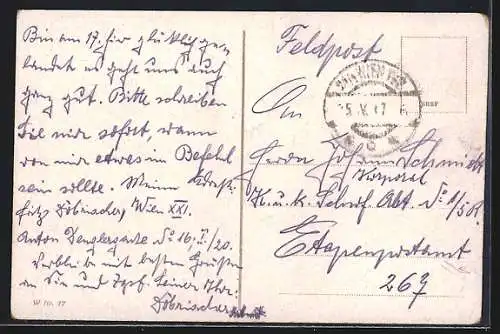 Bin am 17. hier glücklich ge-
landet es geht uns auch
ganz gut. Bitte schreiben
Sie mir sofort, wann
von mir etwas im Befehl
sein sollte. Meine Adresse
Fritz Döbrischer, Wien XXI.
Anton Denglergasse No 16. I/20.
Verbleibe mit besten Grüßen
an Sie und Ihre
Döbrischer
W 10. 17
Feldpost
WIEN
5. V. 17
An
Herrn Johann Schmidt
Korporal
K.u.k. Schwf. Abt. No 1/
Etapenpostamt
267